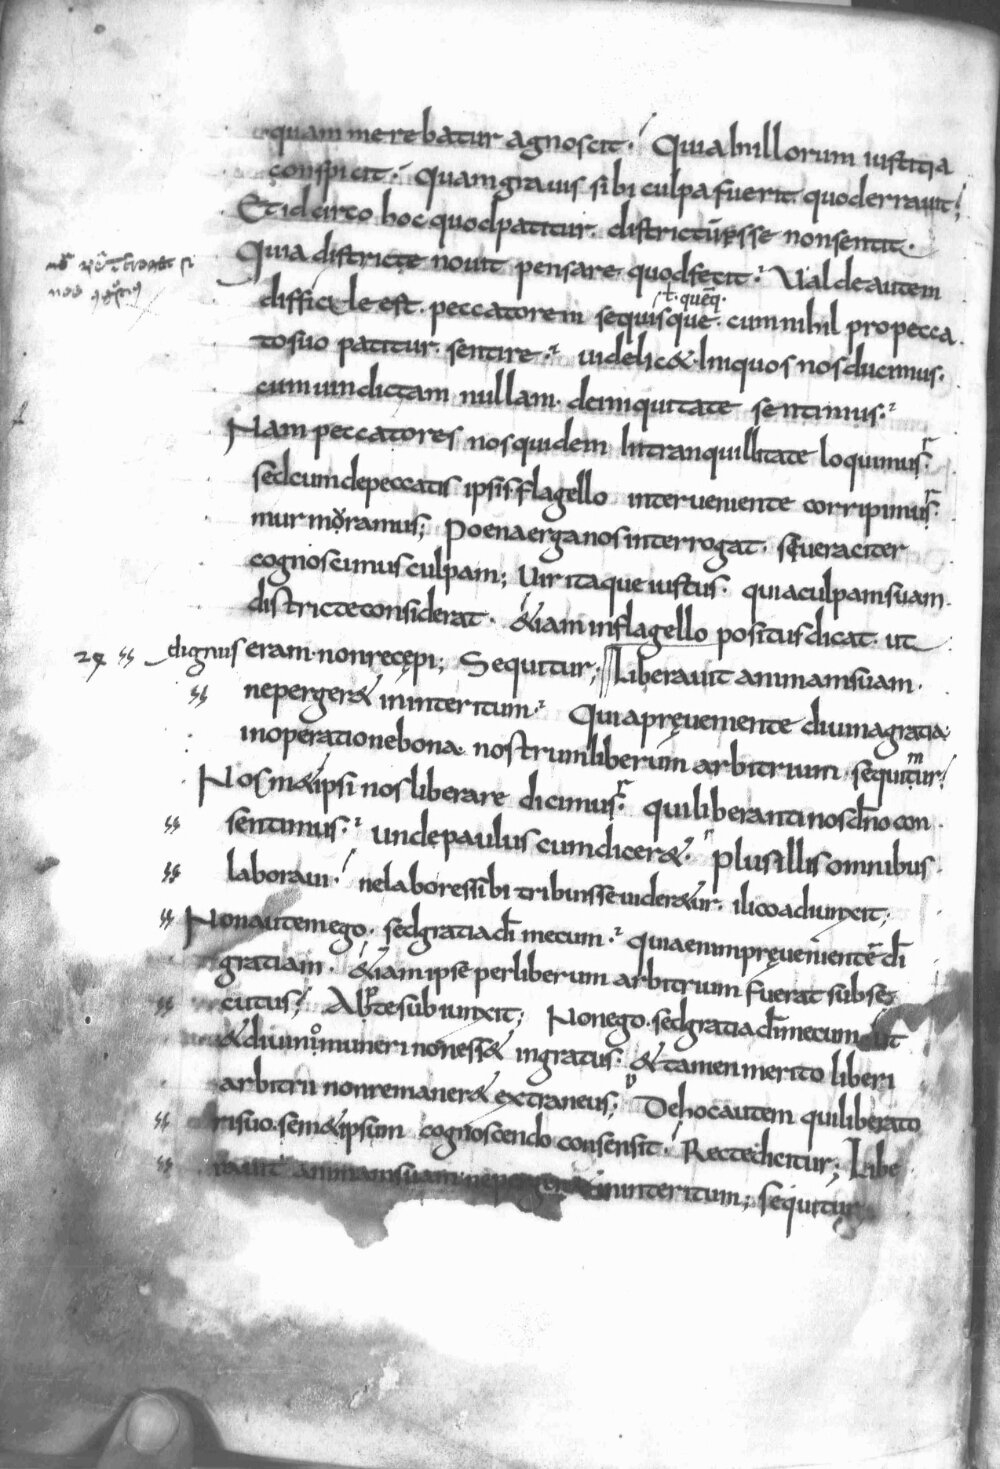 quam merebatur agnoscit. Quia in illorum iustitia
conspicit. quam gravis sibi culpa fuerit quod erravit;
Et idcirco hoc quod patitur. districtum esse non sentit.
Quia districte novit pensare quod fecit. Valde autem
ł queq.
difficile est. peccatorem sequisque. cum nihil pro pecca
to suo patitur. sentire. videlic& In quos nos ducimus.
cum vindictam nullam. de iniquitate sentimus.
Nam peccatores nos quidem In tranquillitate loquimur.
sed cum de peccatis ipsis flagello interveniente corripimur.
murmoramus; Poena ergo nos interrogat. si veraciter
cognoscimus culpam; Vir itaque iustus. quia culpam suam.
districte considerat. &iam in flagello positus dicat. ut
29 dignus eram. non recepi; Sequitur; Liberavit animam suam.
ne perger& in interitum. Quia prevemente divina gratia
in operatione bona. nostrum liberum arbitrium sequitur
Nosm&ipsi nos liberare dicimur. qui liberanti nos dño con
sentimus. unde paulus cum dicer&. plus illis omnibus
laboravi. ne labores sibi tribuisse vider&ur. ilico adiunxit;
Non autem ego. sed gratia di mecum. quia enim prevenientem di
gratiam. &iam ipse per liberum arbitrium fuerat subse
cutus; Apte subiunxit; Non ego. sed gratia di mecum. ut
& divino muneri non ess& ingratus. & tamen merito liberi
arbitrii non remaner& extraneus; De hoc autem qui liberato
ri suo. sem&ipsum cognoscendo consensit. Recte dicitur; Libe
ravit animam suam. ne perger& in interitum; sequitur